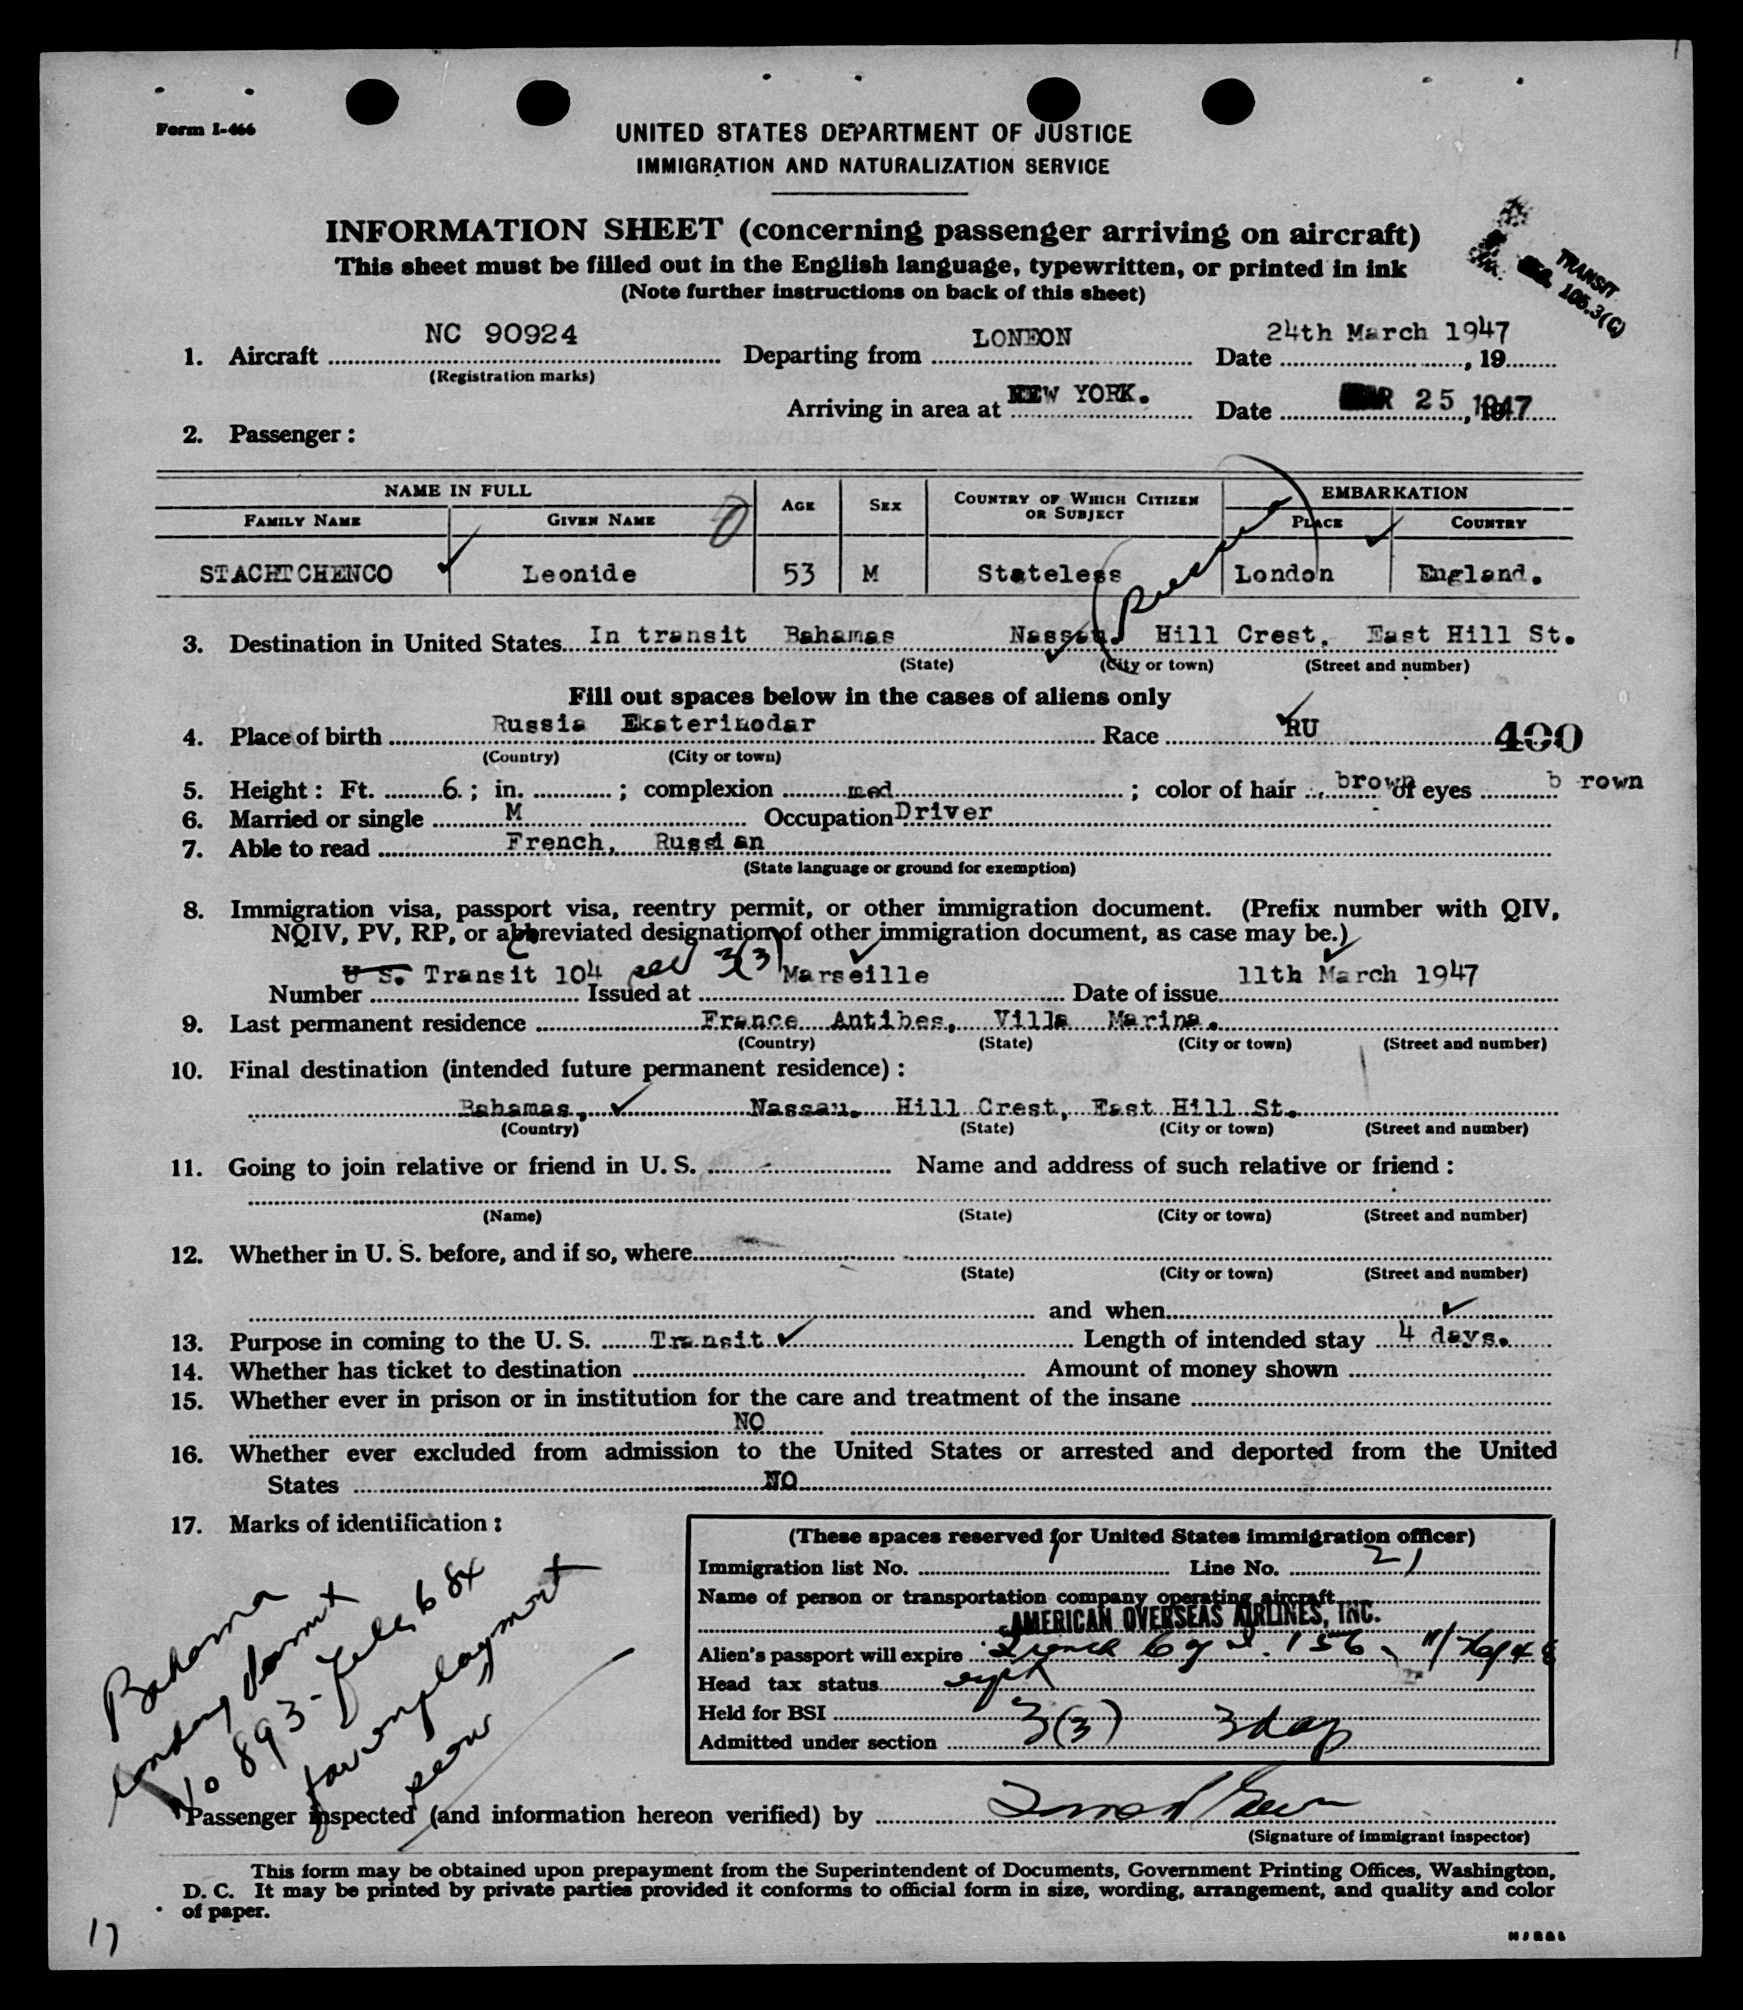 Form I-466
UNITED STATES DEPARTMENT OF JUSTICE
IMMIGRATION AND NATURALIZATION SERVICE
INFORMATION SHEET (concerning passenger arriving on aircraft)
This sheet must be filled out in the English language, typewritten, or printed in ink
(Note further instructions on back of this sheet)
TRANSIT
SEC. 105.3(C)
NC 90924 LONDON 24th March 1947
1. Aircraft Departing from Date , 19
(Registration marks)
Arriving in area at NEW YORK. Date MAR 25 1947
2. Passenger:
NAME IN FULL AGE SEX COUNTRY OF WHICH CITIZEN OR SUBJECT EMBARKATION
FAMILY NAME GIVEN NAME PLACE COUNTRY
STACHTCHENCO Leonide 53 M Stateless London England.
3. Destination in United States In transit Bahamas Nassau. Hill Crest, East Hill St.
(State) (City or town) (Street and number)
Fill out spaces below in the cases of aliens only
4. Place of birth Russia Ekaterinodar Race RU 400
(Country) (City or town)
5. Height: Ft. 6.; in. ; complexion med ; color of hair brown of eyes b rown
6. Married or single M Occupation Driver
7. Able to read French, Russian
(State language or ground for exemption)
8. Immigration visa, passport visa, reentry permit, or other immigration document. (Prefix number with QIV,
NQIV, PV, RP, or abbreviated designation of other immigration document, as case may be.)
U S. Transit 104 3(3) Marseille 11th March 1947
Number Issued at Date of issue
9. Last permanent residence France Antibes, Villa Marina.
(Country) (State) (City or town) (Street and number)
10. Final destination (intended future permanent residence):
Bahamas, Nassau. Hill Crest, East Hill St.
(Country) (State) (City or town) (Street and number)
11. Going to join relative or friend in U. S. Name and address of such relative or friend:
(Name) (State) (City or town) (Street and number)
12. Whether in U. S. before, and if so, where
(State) (City or town) (Street and number)
and when
13. Purpose in coming to the U. S. Transit Length of intended stay 4 days.
14. Whether has ticket to destination Amount of money shown
15. Whether ever in prison or in institution for the care and treatment of the insane
NO
16. Whether ever excluded from admission to the United States or arrested and deported from the United
States NO
17. Marks of identification:
Bahama
landing permit
No 893-
for employment
(These spaces reserved for United States immigration officer)
Immigration list No. 1 Line No. 21
Name of person or transportation company operating aircraft
AMERICAN OVERSEAS AIRLINES, INC.
Alien's passport will expire
Head tax status
Held for BSI
Admitted under section 3(3) 3 day
Passenger inspected (and information hereon verified) by
(Signature of immigrant inspector)
This form may be obtained upon prepayment from the Superintendent of Documents, Government Printing Offices, Washington,
D. C. It may be printed by private parties provided it conforms to official form in size, wording, arrangement, and quality and color
of paper.
17